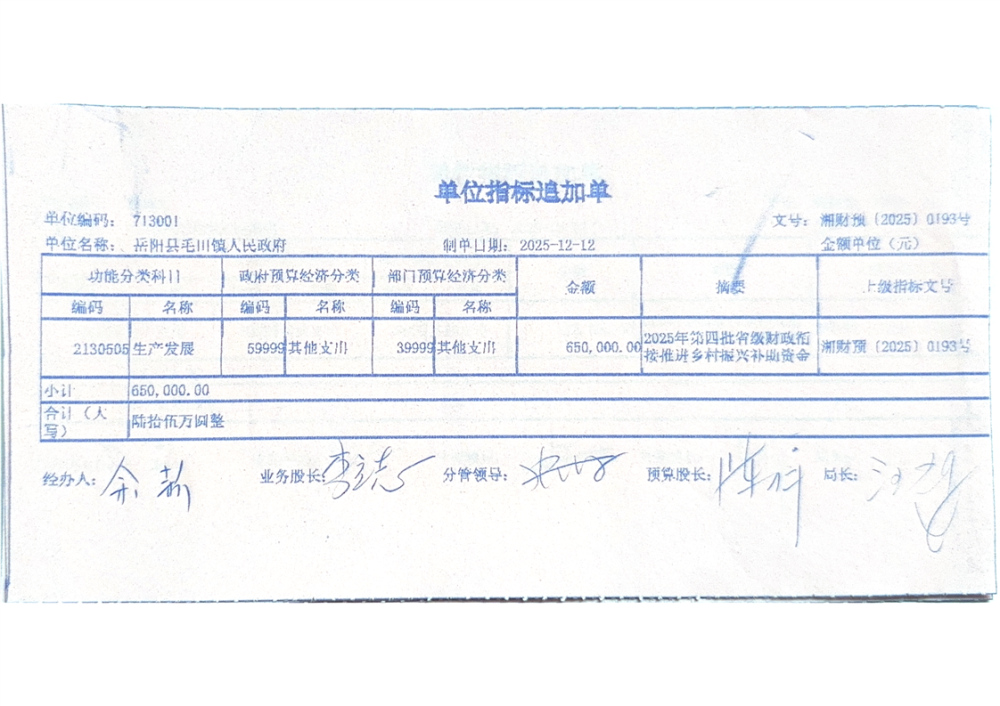 单位指标追加单
单位编码： 713001 文号： 湘财预〔2025〕0193号
单位名称： 岳阳县毛田镇人民政府 制单日期： 2025-12-12 金额单位（元）
功能分类科目 政府预算经济分类 部门预算经济分类 金额 摘要 上级指标文号
编码 名称 编码 名称 编码 名称
2130505 生产发展 59999 其他支出 39999 其他支出 650,000.00 2025年第四批省级财政衔
接推进乡村振兴补助资金 湘财预〔2025〕0193号
小计 650,000.00
合计（大
写） 陆拾伍万圆整
经办人： 业务股长： 李志 分管领导： 预算股长： 局长：